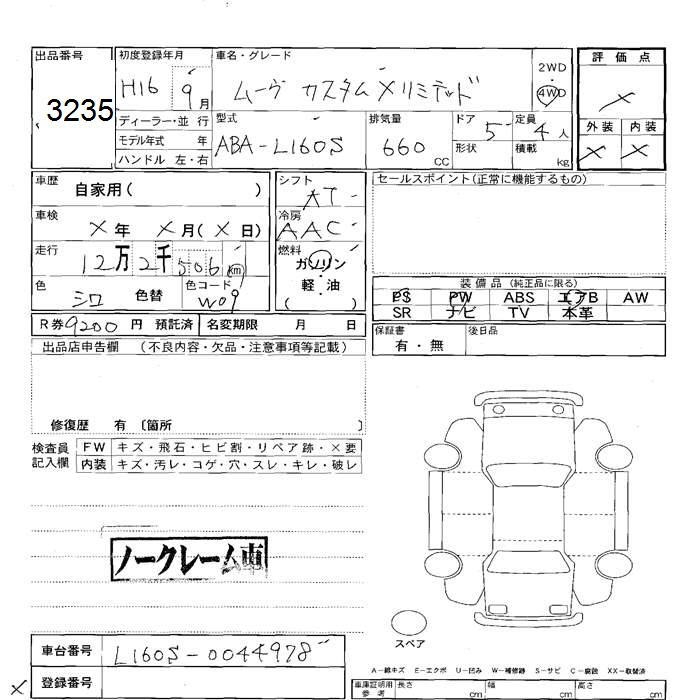 出品番号 初度登録年月 車名・グレード 評価点
3235 H16 9月 ムーヴ カスタム Xリミテッド 2WD 4WD ×
ディーラー・並行 型式 排気量 ドア 5 定員 4人 外装 内装
モデル年式 年 ABA-L160S 660 CC 形状 積載 kg × ×
ハンドル 左・右
車歴 自家用( ) シフト AT セールスポイント(正常に機能するもの)
車検 ×年 ×月(×日) 冷房 AAC
走行 12万2千506km 燃料 ガソリン
軽・油
( )
色 シロ 色替 色コード W09
装備品(純正品に限る)
PS PW ABS エアB AW
SR ナビ TV 本革
R券 9200円 預託済 名変期限 月 日
保証書 後日品
有・無
出品店申告欄 (不良内容・欠品・注意事項等記載)
修復歴 有 〔箇所 〕
検査員 FW キズ・飛石・ヒビ割・リペア跡・×要
記入欄 内装 キズ・汚レ・コゲ・穴・スレ・キレ・破レ
ノークレーム車
スペア
車台番号 L160S-0044978
A-線キズ E-エクボ U-凹み W-補修跡 S-サビ C-腐蝕 XX-取替済
× 登録番号
車庫証明用 長さ 幅 高さ
参考 cm cm cm